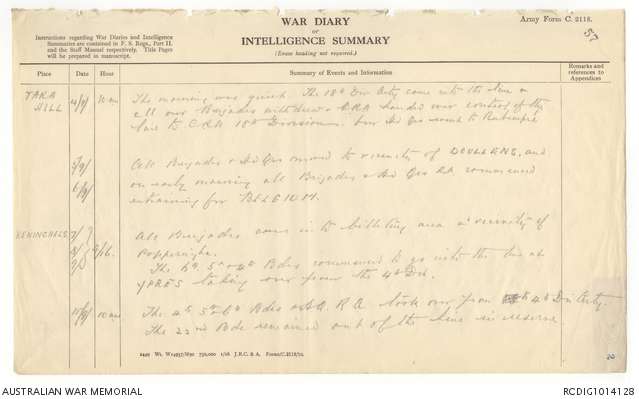 WAR DIARY
or
INTELLIGENCE SUMMARY
(Erase heading not required.)
Army Form C. 2118.
57
Instructions regarding War Diaries and Intelligence
Summaries are contained in F. S. Regs., Part II.
and the Staff Manual respectively. Title Pages
will be prepared in manuscript.
Place
Date
Hour
Summary of Events and Information
Remarks and
references to
Appendices
TARA HILL 4/9/ 10 am The morning was quiet. The 18th Div Arty came into the line &
all our Brigades withdrew & CRA handed over control of the
line to C.R.A. 18th Division. Our Hd Qrs went to Rubempré
5/9/ All Brigades & Hd Qrs moved to vicinity of DOULLENS, and
6/9/ on early morning all Brigades & Hd Qrs RA commenced
entraining for BELGIUM.
RENINGHELST 7/ 8/ 9/ 9/16. All Brigades came in to billeting area in vicinity of
Poperinghe.
The 5th & 4th Bdes commenced to go into the line at
YPRES taking over from the 4th Div.
10/9/ 10 am The 4th 5th & 6th Bdes & H.Q. R.A. took over from 4th Div Arty.
The 22nd Bde remained out of the line in reserve.
2449 Wt. W14957/M90 750,000 1/16 J.B.C. & A. Forms/C.2118/12.
AUSTRALIAN WAR MEMORIAL
RCDIG1014128